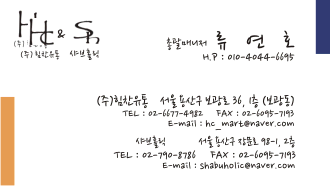 H & Sh
(주)힘찬유통 샤브홀릭
총괄매니저 류 연 호
H.P : 010-4044-6695
(주)힘찬유통 서울 용산구 보광로 36, 1층 (보광동)
TEL : 02-6677-4982 FAX : 02-6095-7193
E-mail : hc_mart@naver.com
샤브홀릭 서울 용산구 장문로 98-1, 2층
TEL : 02-790-8786 FAX : 02-6095-7193
E-mail : shabuholic@naver.com